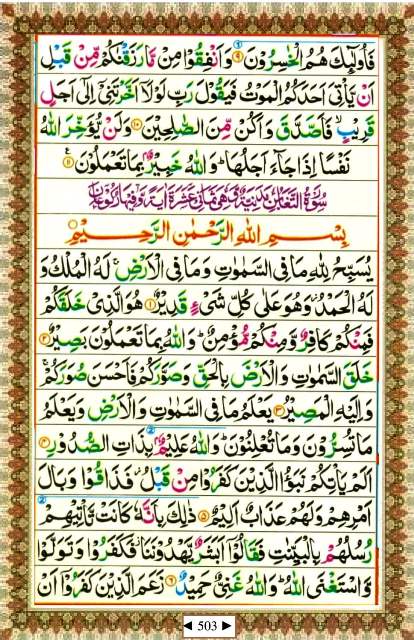 فَاُولٰٓئِكَ هُمُ الْخٰسِرُوْنَ ۹ وَاَنْفِقُوْا مِنْ مَّا رَزَقْنٰكُمْ مِّنْ قَبْلِ
اَنْ يَّاْتِىَ اَحَدَكُمُ الْمَوْتُ فَيَقُوْلَ رَبِّ لَوْلَاۤ اَخَّرْتَنِىْۤ اِلٰۤى اَجَلٍ
قَرِيْبٍۙ فَاَصَّدَّقَ وَاَكُنْ مِّنَ الصّٰلِحِيْنَ ۱۰ وَلَنْ يُّؤَخِّرَ اللّٰهُ
نَفْسًا اِذَا جَآءَ اَجَلُهَاؕ وَاللّٰهُ خَبِيْرٌۢ بِمَا تَعْمَلُوْنَ ۱۱
سُوْرَةُ التَّغَابُنِ مَدَنِيَّةٌ وَّهِىَ ثَمَانِىَ عَشْرَةَ اٰيَةً وَّفِيْهَا رُكُوْعَانِ
بِسْمِ اللّٰهِ الرَّحْمٰنِ الرَّحِيْمِ
يُسَبِّحُ لِلّٰهِ مَا فِى السَّمٰوٰتِ وَمَا فِى الْاَرْضِۚ لَهُ الْمُلْكُ وَ
لَهُ الْحَمْدُ وَهُوَ عَلٰى كُلِّ شَىْءٍ قَدِيْرٌ ۱ هُوَ الَّذِىْ خَلَقَكُمْ
فَمِنْكُمْ كَافِرٌ وَّمِنْكُمْ مُّؤْمِنٌؕ وَاللّٰهُ بِمَا تَعْمَلُوْنَ بَصِيْرٌ ۲
خَلَقَ السَّمٰوٰتِ وَالْاَرْضَ بِالْحَقِّ وَصَوَّرَكُمْ فَاَحْسَنَ صُوَرَكُمْۚ
وَاِلَيْهِ الْمَصِيْرُ ۳ يَعْلَمُ مَا فِى السَّمٰوٰتِ وَالْاَرْضِ وَيَعْلَمُ
مَا تُسِرُّوْنَ وَمَا تُعْلِنُوْنَؕ وَاللّٰهُ عَلِيْمٌۢ بِذَاتِ الصُّدُوْرِ ۴
اَلَمْ يَاْتِكُمْ نَبَؤُا الَّذِيْنَ كَفَرُوْا مِنْ قَبْلُ فَذَاقُوْا وَبَالَ
اَمْرِهِمْ وَلَهُمْ عَذَابٌ اَلِيْمٌ ۵ ذٰلِكَ بِاَنَّهٗ كَانَتْ تَّاْتِيْهِمْ
رُسُلُهُمْ بِالْبَيِّنٰتِ فَقَالُوْۤا اَبَشَرٌ يَّهْدُوْنَنَا فَكَفَرُوْا وَتَوَلَّوْا
وَّاسْتَغْنَى اللّٰهُؕ وَاللّٰهُ غَنِىٌّ حَمِيْدٌ ۶ زَعَمَ الَّذِيْنَ كَفَرُوْۤا اَنْ
◄ 503 ►